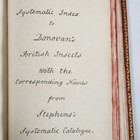 Systematic Index
to
Donovan's
British Insects
With the
Corresponding Names
from
Stephens's
Systematic Catalogue.